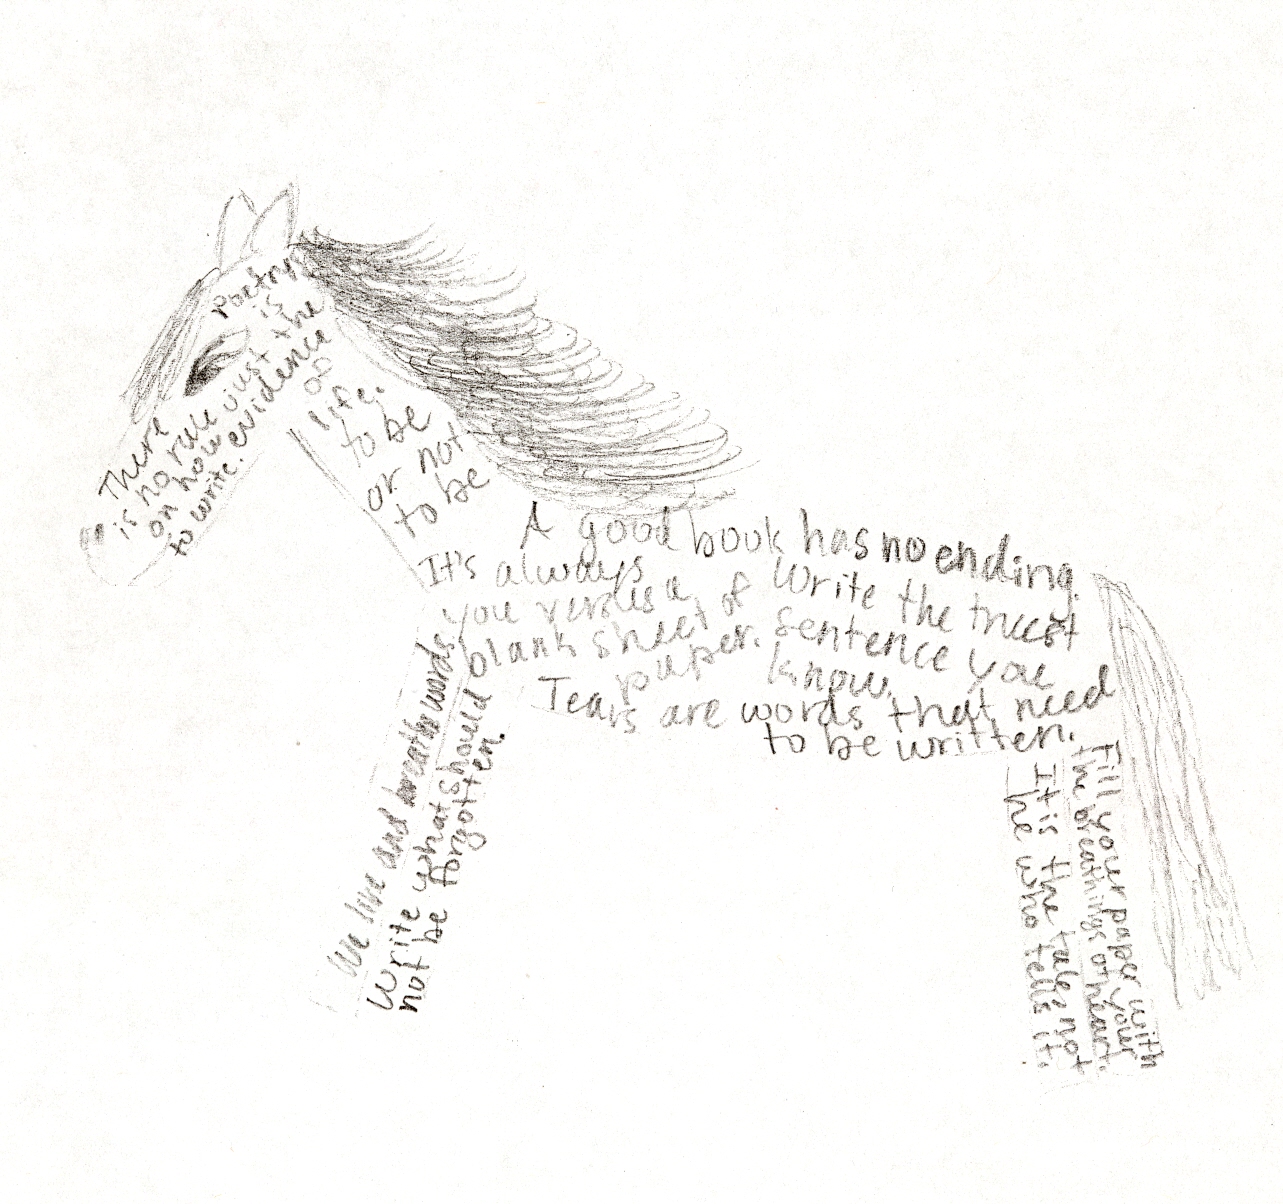 Poetry
is
just the
evidence
of
life.
There
is no rule
on how
to write.
to be
or not
to be
A good book has no ending.
It's always
you versus a
blank sheet of
paper.
Write the truest
sentence you
know.
Tears are words that need
to be written.
We live and breathe words
Write what should
not be forgotten.
Fill your paper with
the breathings of your
heart.
It is the tale not
he who tells it.